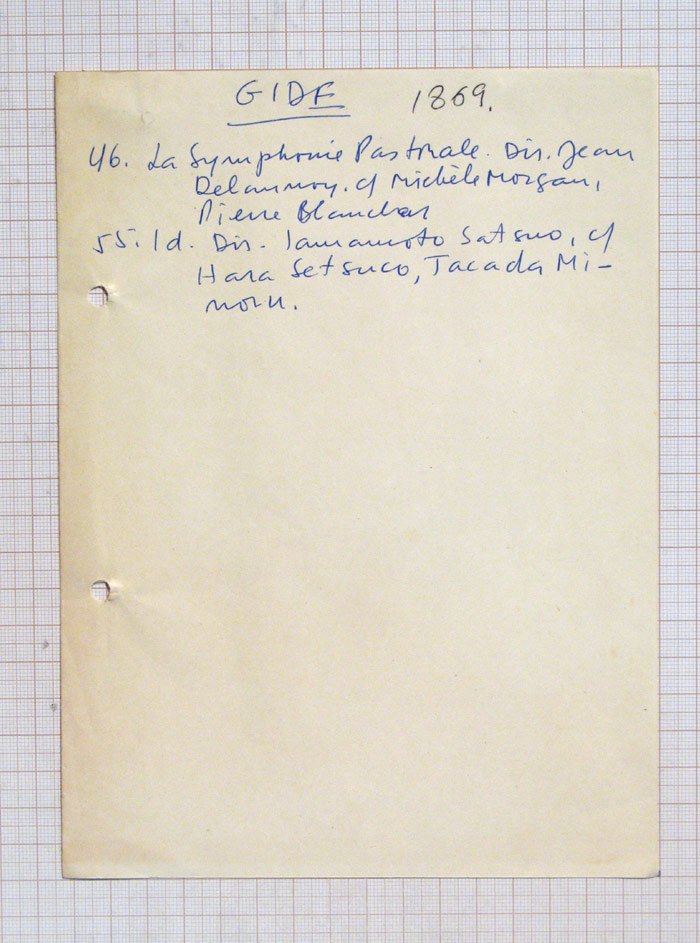 GIDE 1869.
46. La Symphonie Pastorale. Dir. Jean
Delannoy. c/ Michèle Morgan,
Pierre Blanchar
55. Id. Dir. Iamamoto Satsuo, c/
Hara Setsuco, Tacada Mi-
noru.